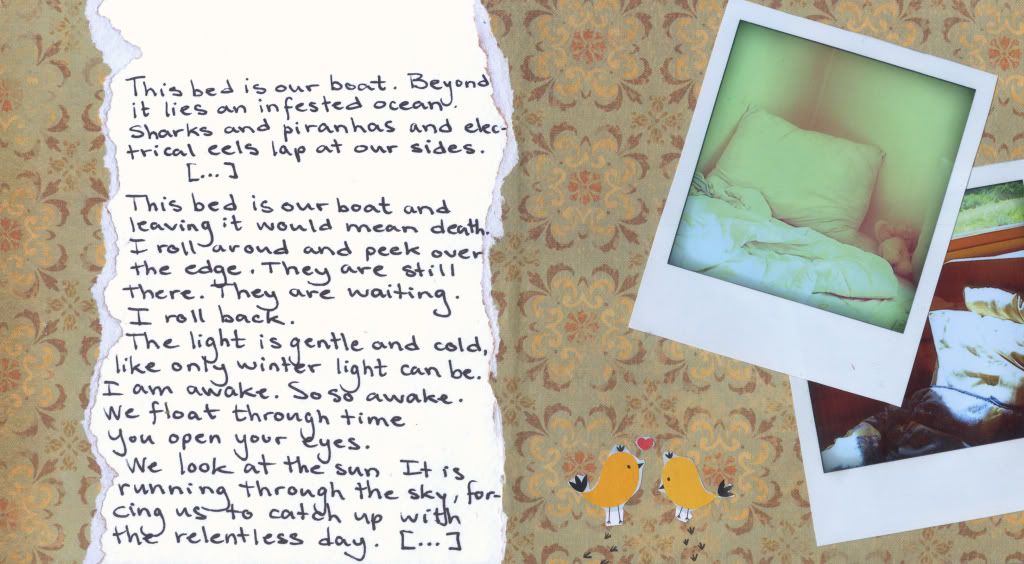 This bed is our boat. Beyond
it lies an infested ocean.
Sharks and piranhas and elec-
trical eels lap at our sides.
[...]
This bed is our boat and
leaving it would mean death.
I roll aroud and peek over
the edge. They are still
there. They are waiting.
I roll back.
The light is gentle and cold,
like only winter light can be.
I am awake. So so awake.
We float through time
You open your eyes.
We look at the sun. It is
running through the sky, for-
cing us to catch up with
the relentless day. [...]